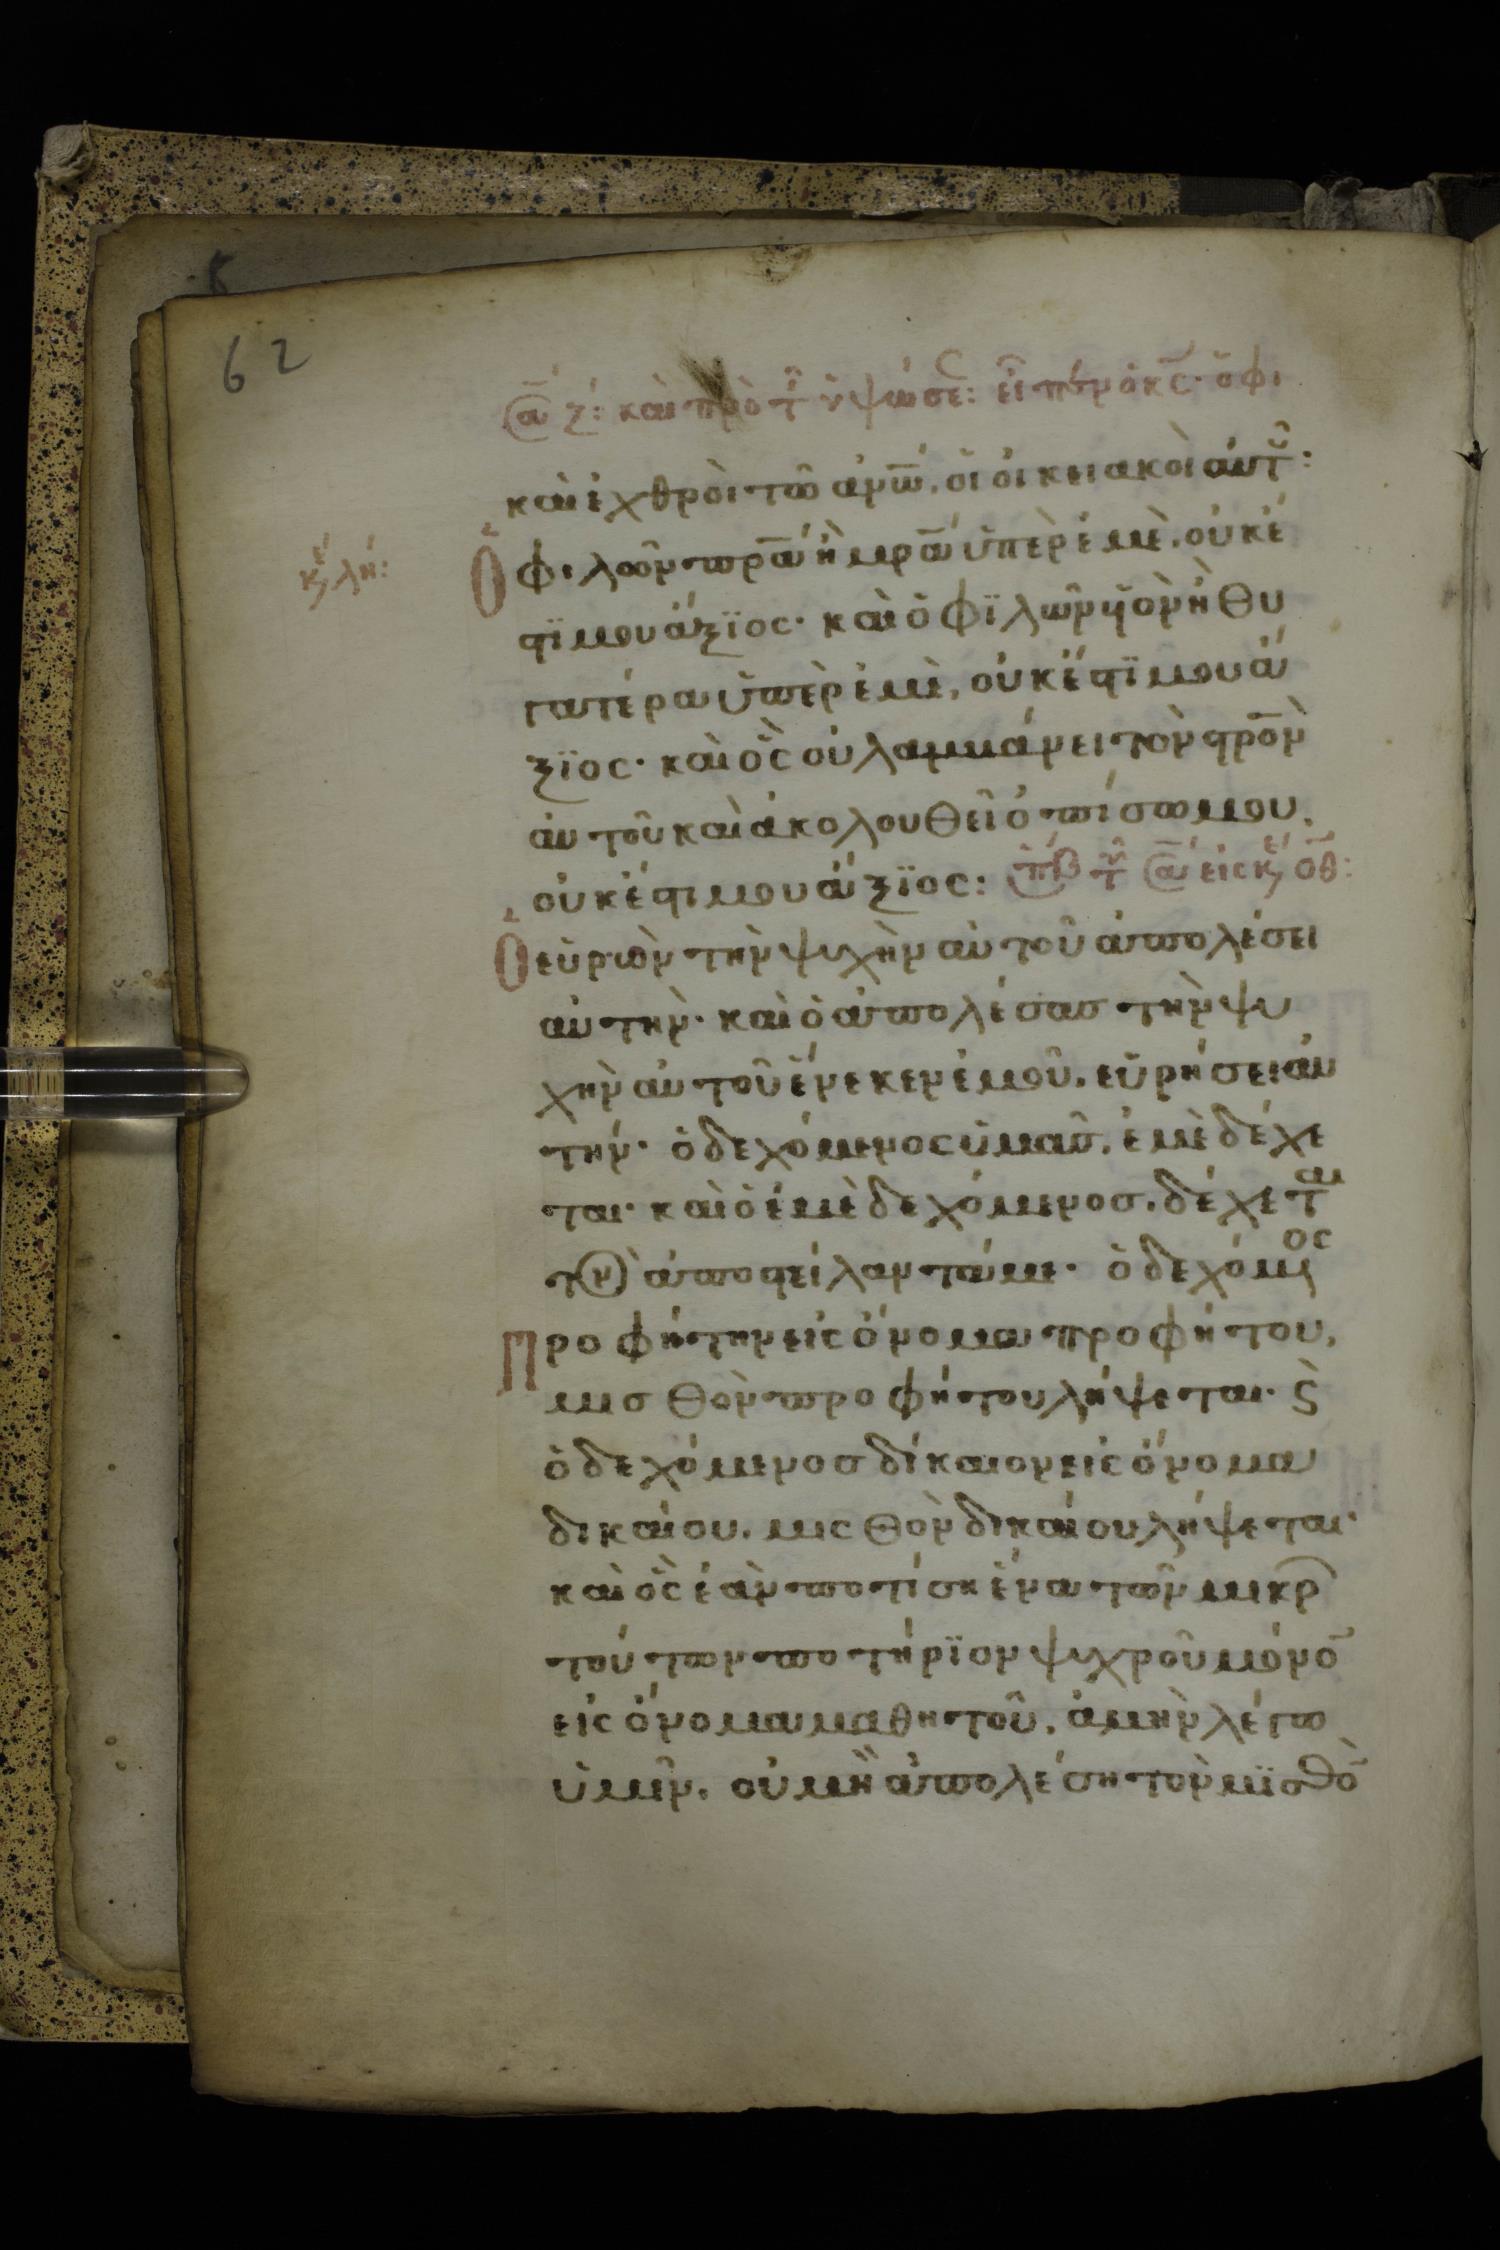 62
σα ζ: καὶ πρὸ τ ὑψώσε: εἶπεν ὁ κς· ὁ φι
καὶ ἐχθροὶ τοῦ ἀνου, οἱ οἰκειακοὶ αὐτ:
κε λη:
Ὁ φιλῶν πρα ἢ μρα ὑπὲρ ἐμὲ, οὐκ ἔ
στϊ μου ἄξϊος· καὶ ὁ φϊλῶν ὑὸν ἢ θυ
γατέρα ὑπὲρ ἐμὲ, οὐκ ἔστϊ μου ἄ
ξϊος· καὶ ὃς οὐ λαμβάνει τὸν στρον
αὐτοῦ καὶ ἀκολουθεῖ ὀπίσω μου,
οὐκ ἔστι μου ἄξϊος: αβ τ σα εἰς κε οθ:
Ὁ εὑρὼν τὴν ψυχὴν αὐτοῦ ἀπολέσει
αὐτὴν· καὶ ὁ ἀπολέσας τὴν ψυ
χὴν αὐτοῦ ἕνεκεν ἐμοῦ, εὑρήσει αὐ
τήν· ὁ δεχόμενος ὑμᾶς, ἐμὲ δέχε
ται· καὶ ὁ ἐμὲ δεχόμενος, δέχεται
τὸν ἀποστείλαντά με· ὁ δεχόμενος
προφήτην εἰς ὄνομα προφήτου,
μισθὸν προφήτου λήψεται· ϛ
ὁ δεχόμενος δίκαιον εἰς ὄνομα
δικαίου, μισθὸν δικαίου λήψεται·
καὶ ὃς ἐὰν ποτίσῃ ἕνα τῶν μικρ
τούτων ποτήρϊον ψυχροῦ μόνο
εἰς ὄνομα μαθητοῦ, ἀμὴν λέγω
ὑμῖν, οὐ μὴ ἀπολέσῃ τὸν μϊσθὸ